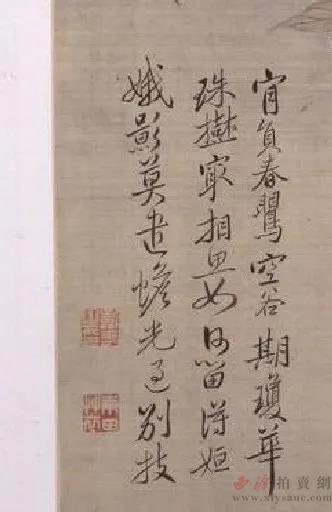 肯負春鸎空谷期瓊華
珠樹㝡相思如何留得姮
娥影莫遣蟾光過別枝
西泠拍賣網
www.xlysauc.com